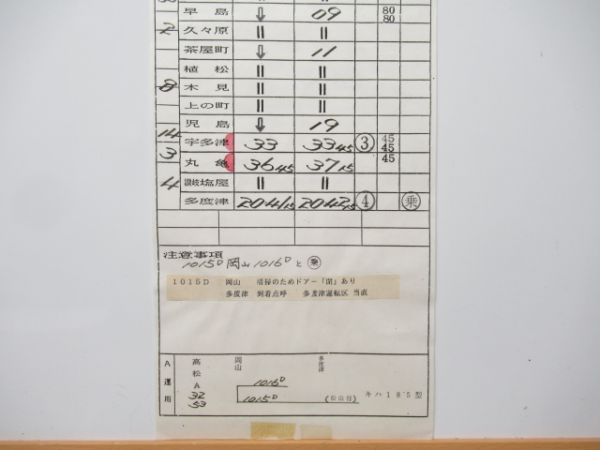 早島 ⇓ 09 80 80
2 久々原 || ||
茶屋町 ⇓ 11
植松 || ||
8 木見 || ||
上の町 || ||
児島 ⇓ 19
14 宇多津 33 33 45 ③ 45 45
3 丸亀 36 45 37 15 45
4 讃岐塩屋 || ||
多度津 2041 15 2042 15 ④ 乗
注意事項
1015D 岡山 1016D と 乗
1015D 岡山 清掃のためドアー「閉」あり
多度津 到着点呼 多度津運転区 当直
A運用 高松A 32 53 岡山 多度津
1016D
1015D キハ185型